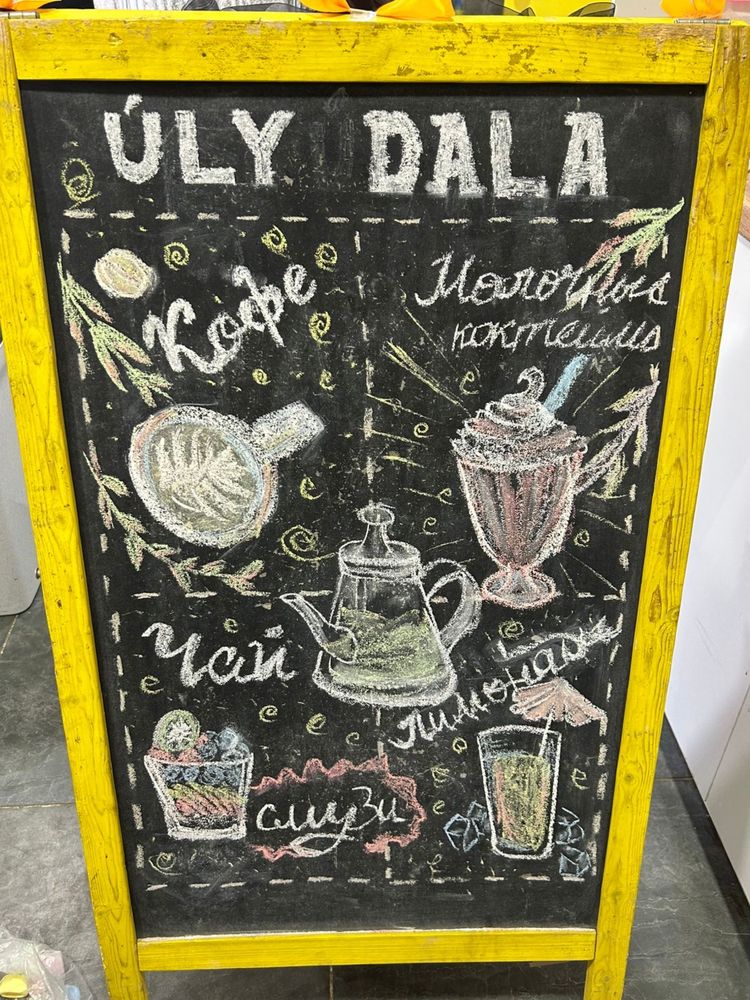 ÚLY DALA
Кофе
Молочные
коктейли
Чай
Лимонады
смузи